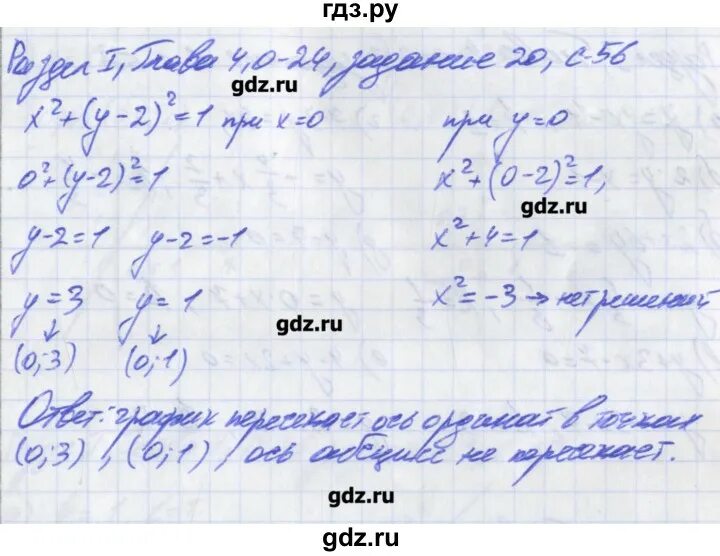 гдз.ру
Раздел I, Глава 4, О-24, задание 20, с-56
gdz.ru
x²+(y-2)²=1 при x=0
при y=0
0²+(y-2)²=1
x²+(0-2)²=1,
gdz.ru
y-2=1 y-2=-1
x²+4=1
y=3 y=1
x²=-3 → нет решений
gdz.ru
↓ ↓
(0;3) (0;1)
Ответ: график пересекает ось ординат в точках
(0;3), (0;1), ось абсцисс не пересекает.
gdz.ru
gdz.ru